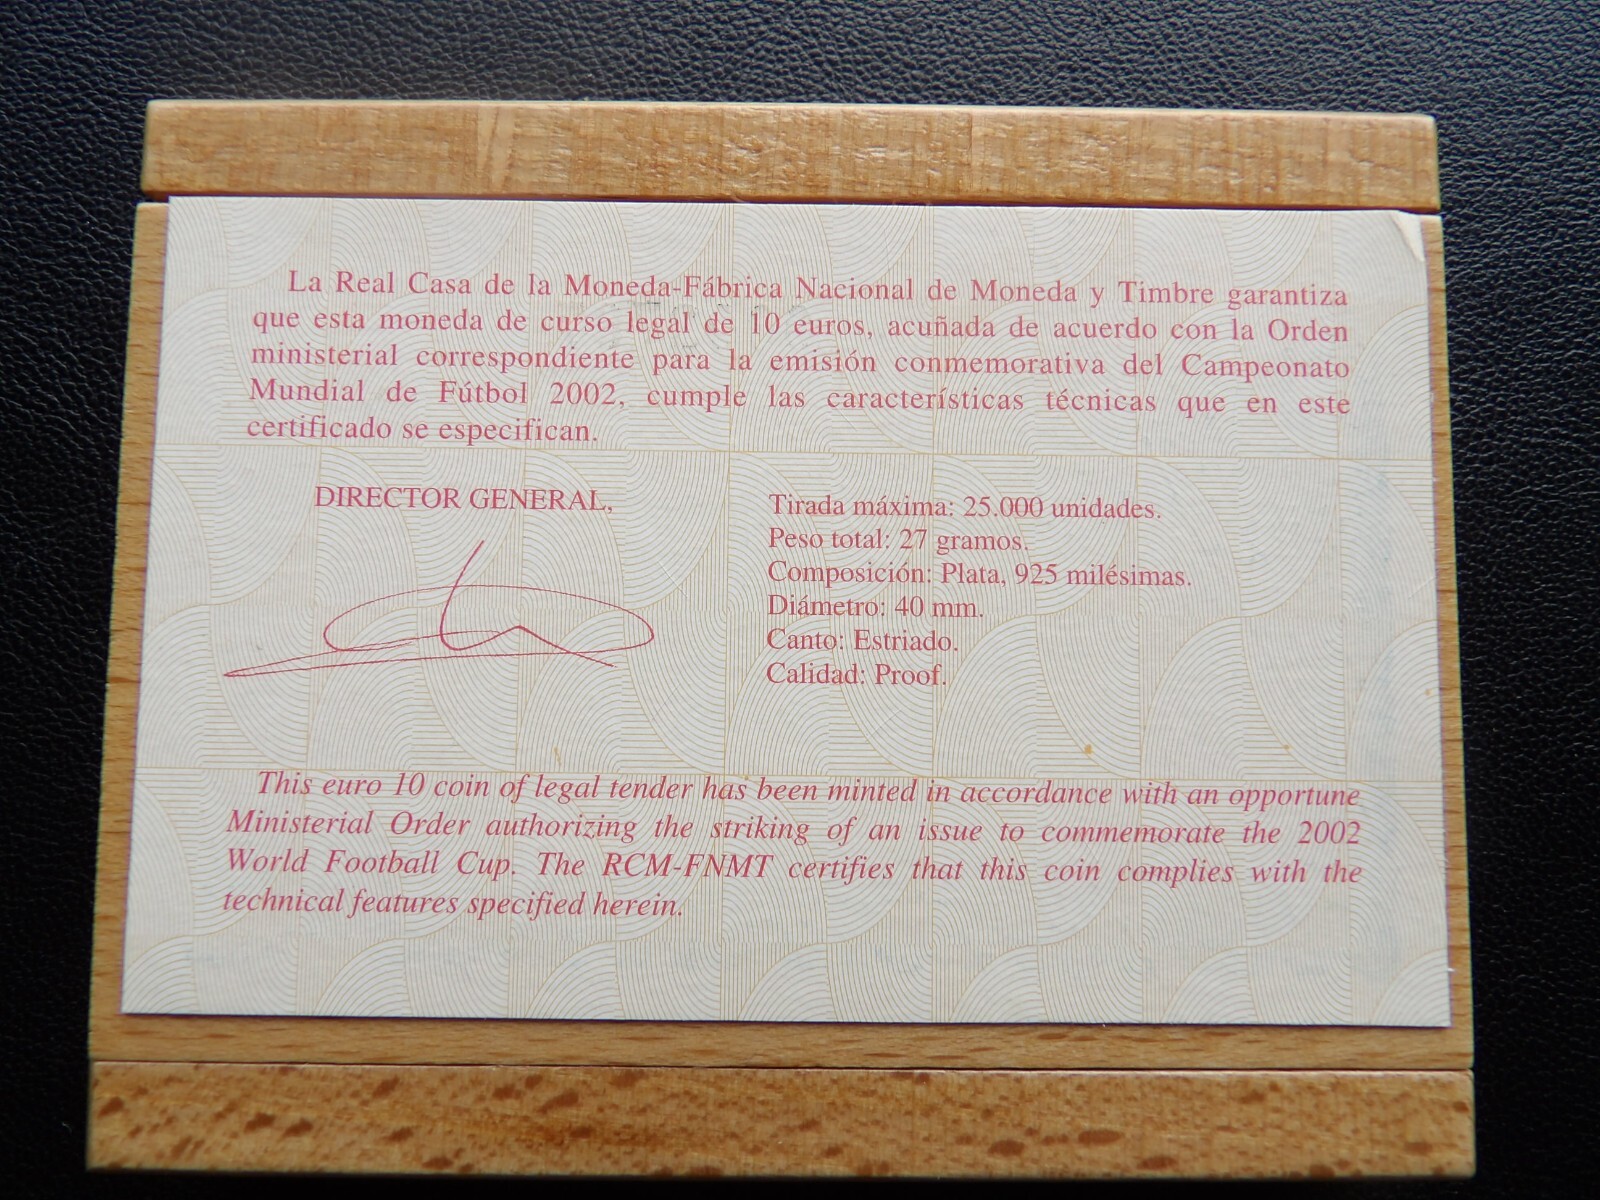 La Real Casa de la Moneda-Fábrica Nacional de Moneda y Timbre garantiza
que esta moneda de curso legal de 10 euros, acuñada de acuerdo con la Orden
ministerial correspondiente para la emisión conmemorativa del Campeonato
Mundial de Fútbol 2002, cumple las características técnicas que en este
certificado se especifican.
DIRECTOR GENERAL,
Tirada máxima: 25.000 unidades.
Peso total: 27 gramos.
Composición: Plata, 925 milésimas.
Diámetro: 40 mm.
Canto: Estriado.
Calidad: Proof.
This euro 10 coin of legal tender has been minted in accordance with an opportune
Ministerial Order authorizing the striking of an issue to commemorate the 2002
World Football Cup. The RCM-FNMT certifies that this coin complies with the
technical features specified herein.